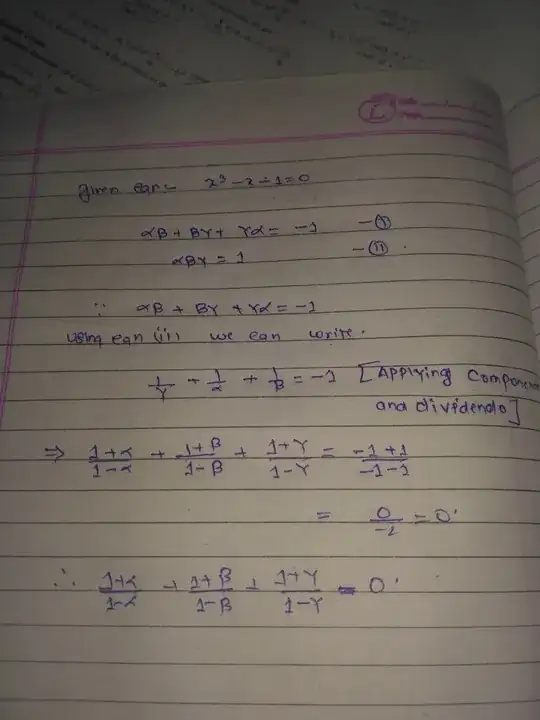 given eqn:- x³ - x - 1 = 0
αβ + βγ + γα = -1 - (i)
αβγ = 1 - (ii)
∵ αβ + βγ + γα = -1
using eqn (ii) we can write.
1/γ + 1/α + 1/β = -1 [Applying Componen
and dividendo]
⇒ (1+α)/(1-α) + (1+β)/(1-β) + (1+γ)/(1-γ) = (-1+1)/(-1-1)
= 0/-2 = 0.
∴ (1+α)/(1-α) + (1+β)/(1-β) + (1+γ)/(1-γ) = 0.